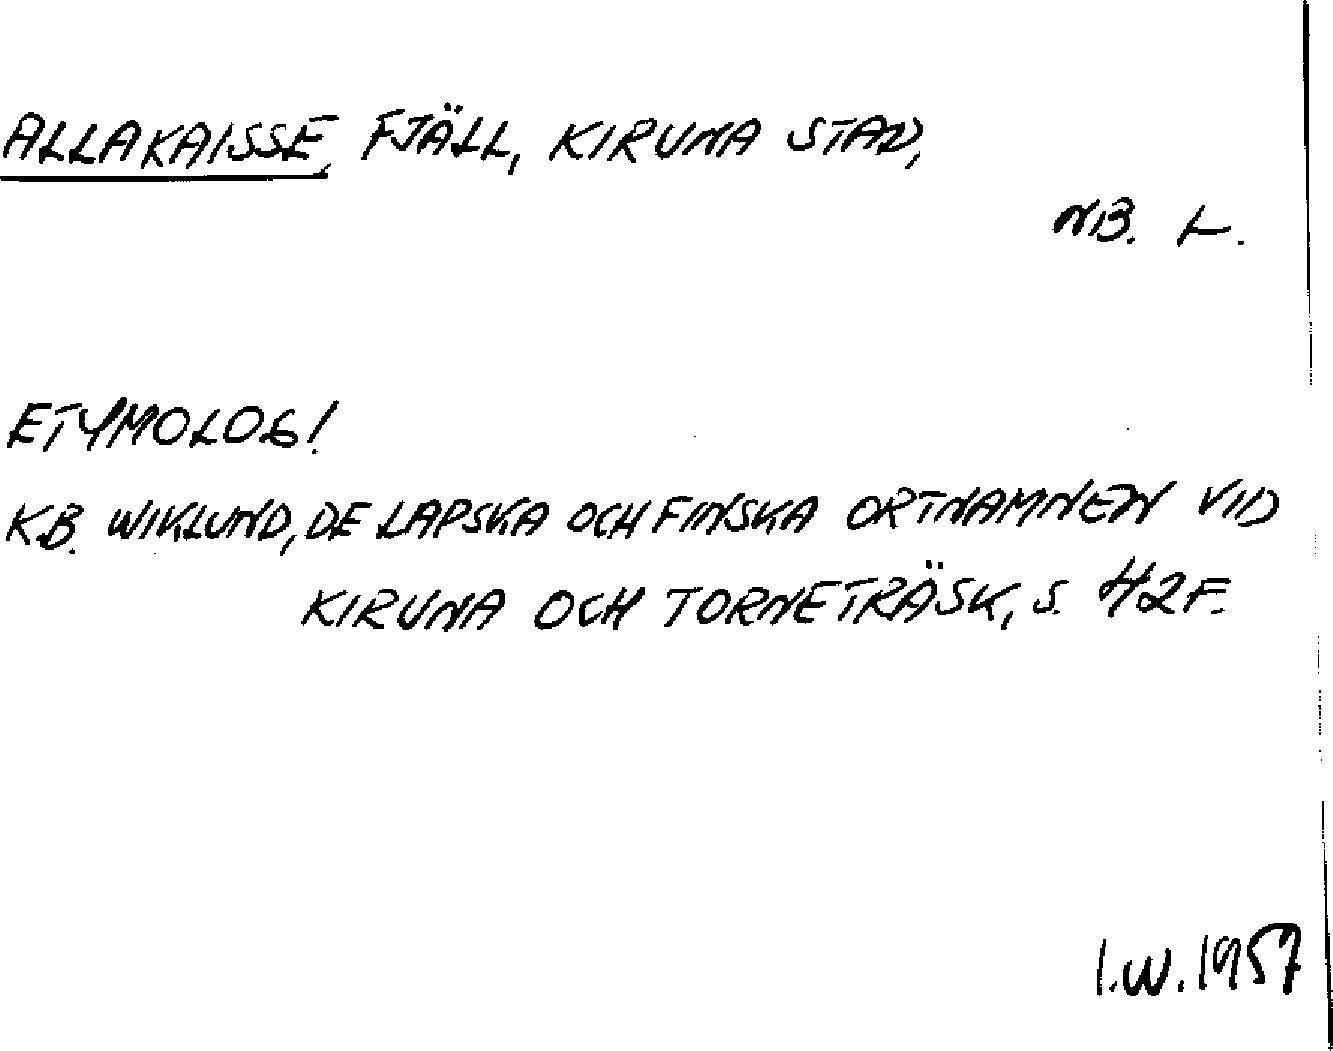 ALLAKAISSE, FJÄLL, KIRUNA STAD,
NB. L.
ETYMOLOGI
KB. WIKLUND, DE LAPSKA OCH FINSKA ORTNAMNEN VID
KIRUNA OCH TORNETRÄSK, S. 42F.
I.W. 1957